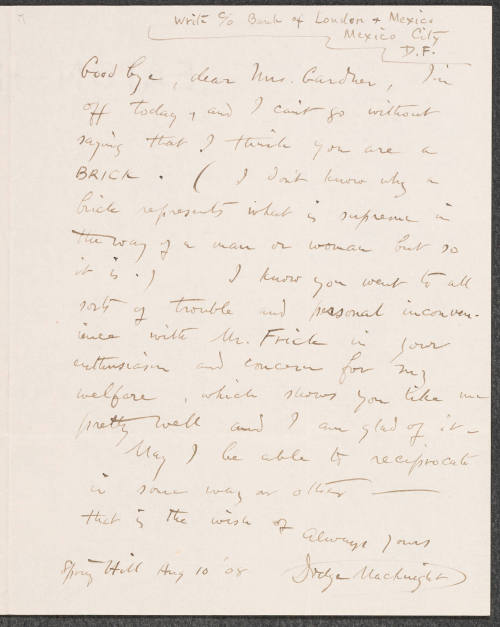 Write c/o Bank of London + Mexico
Mexico City
D.F.
Good bye, dear Mrs. Gardner, I'm
off today, and I can't go without
saying that I think you are a
BRICK. (I don't know why a
brick represents what is supreme in
the way of a man or woman but so
it is.) I know you went to all
sorts of trouble and personal inconven-
ience with Mr. Frick in your
enthusiasm and concern for my
welfare, which shows you like me
pretty well and I am glad of it —
May I be able to reciprocate
in some way or other —
that is the wish of
Always yours
Dodge Macknight
Spring Hill Aug 10 '08